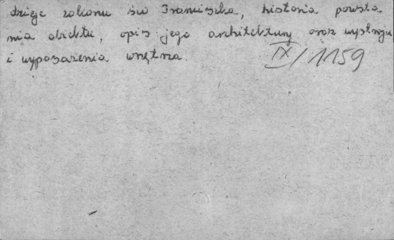 dzieje zakonu św Franciszka, historia powsta
nia obiektu, opis jego architektury oraz wystroju
i wyposażenia wnętrza IX/1159